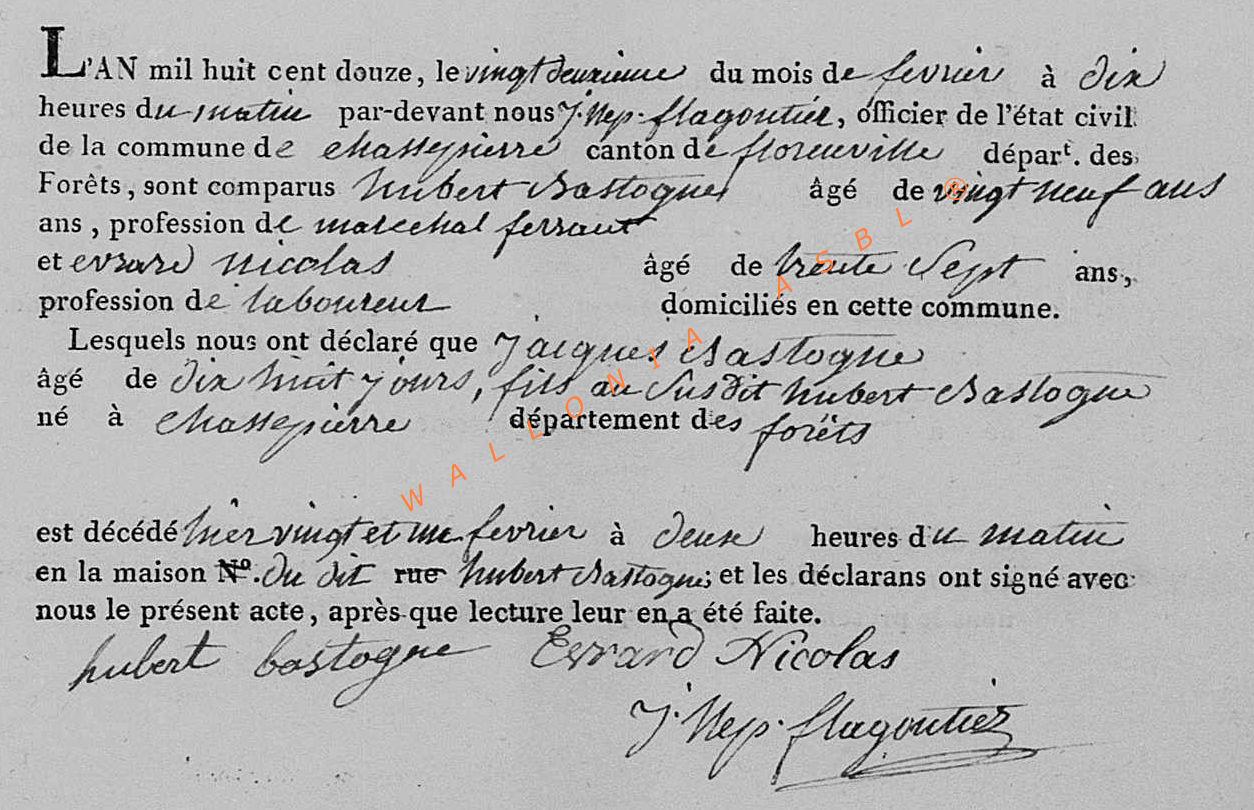 L'AN mil huit cent douze, le vingt deuxieme du mois de fevrier à dix
heures du matin par-devant nous J. Nep. flagoutier, officier de l'état civil
de la commune de chassepierre canton de florenville départ. des
Forêts, sont comparus hubert Bastogne âgé de vingt neuf ans
ans, profession de marechal ferrant
et evrard nicolas âgé de trente Sept ans,
profession de laboureur domiciliés en cette commune.
Lesquels nous ont déclaré que Jacques Bastogne
âgé de dix huit jours, fils au Susdit hubert Bastogne
né à chassepierre département des forêts
est décédé hier vingt et un fevrier à deux heures du matin
en la maison N°. du dit rue hubert Bastogne; et les déclarans ont signé avec
nous le présent acte, après que lecture leur en a été faite.
hubert bastogne Evrard Nicolas
J. Nep. flagoutier
WALLONIA ASBL ®